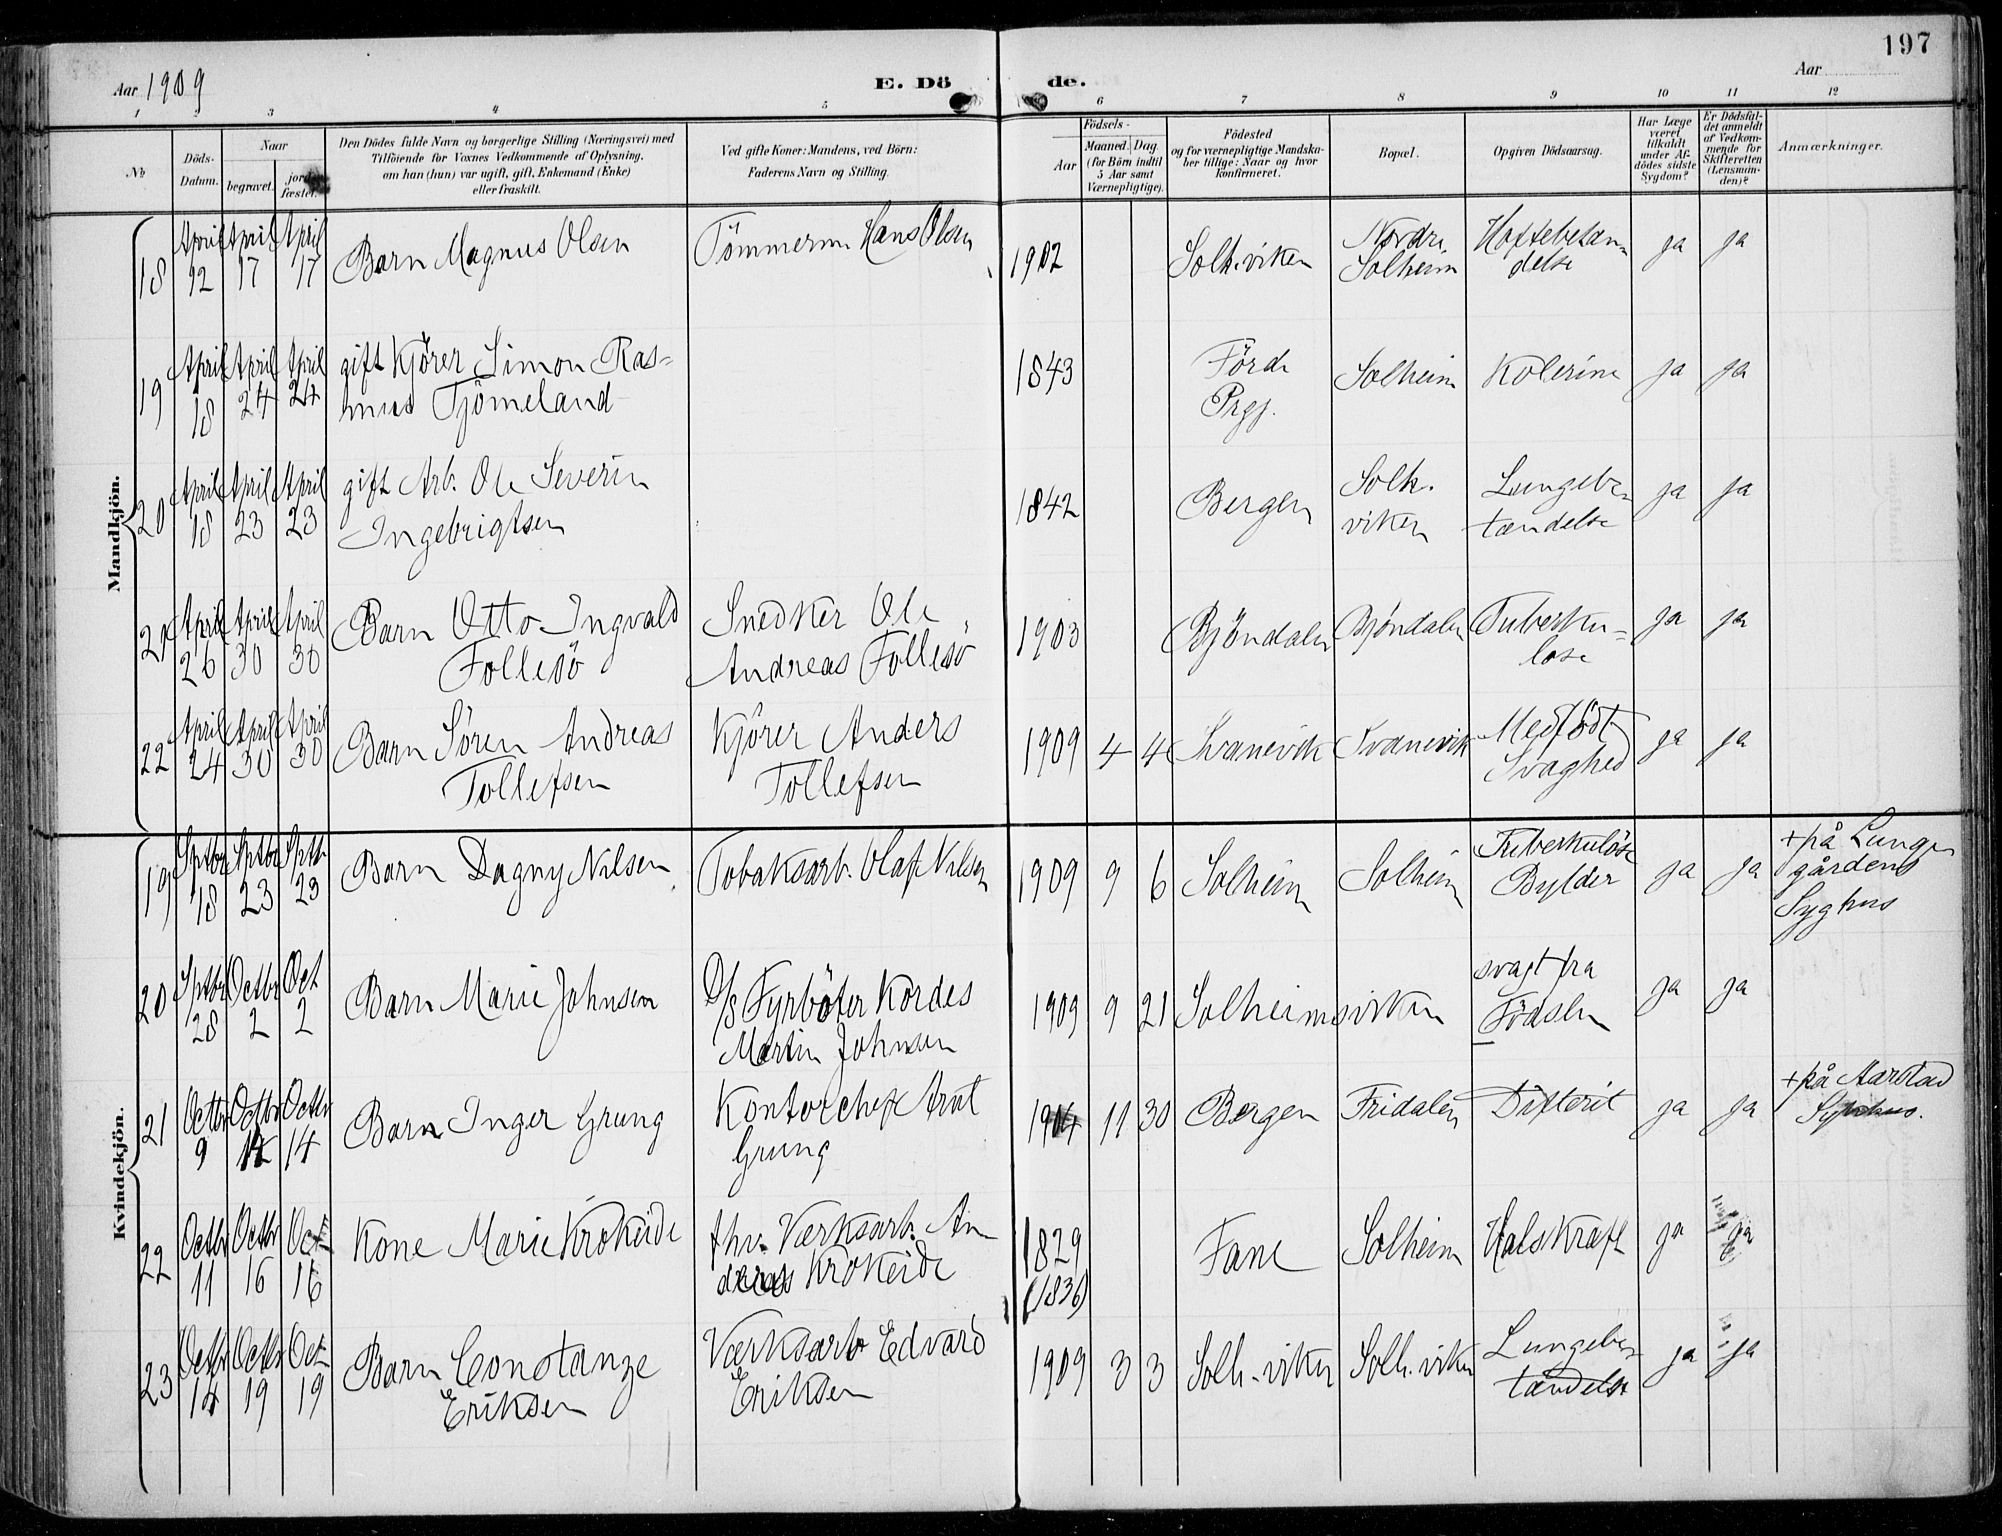 197
Aar 1909
E. Dö
de.
Aar
1 2 3 4 5 6 7 8 9 10 11 12
№
Döds-
Datum.
Naar
begravet.
jords-
fæstet.
Den Dödes fulde Navn og borgerlige Stilling (Næringsvei) med
Tilföiende for Voxnes Vedkommende af Oplysning,
om han (hun) var ugift, gift, Enkemand (Enke)
eller fraskilt.
Ved gifte Koner: Mandens, ved Börn:
Faderens Navn og Stilling.
Födsels-
Aar
Maaned. Dag.
(for Börn indtil
5 Aar samt
Værnepligtige).
Födested
og for værnepligtige Mandska-
ber tillige: Naar og hvor
konfirmeret.
Bopæl.
Opgiven Dödsaarsag.
Har Læge
været
tilkaldt
under Af-
dödes sidste
Sygdom?
Er Dödsfal-
det anmeldt
af Vedkom-
mende for
Skifteretten
(Lensman-
den)?
Anmærkninger.
Mandkjön.
18 April 12 April 17 April 17 Barn Magnus Olsen Tömmerm Hans Olsen 1902 Solh.viken Nordre Solheim Hoftebetændelse ja ja
19 April 18 April 24 April 24 gift Kjörer Simon Ras-
mus Tjömeland 1843 Förde
Prgj. Solheim Kolerine ja ja
20 April 18 April 23 April 23 gift Arb. Ole Severin
Ingebrigtsen 1842 Bergen Solh.
viken Lungebe-
tændelse ja ja
21 April 26 April 30 April 30 Barn Otto Ingvald
Follesö Snedker Ole
Andreas Follesö 1903 Bjöndalen Bjöndalen Tuberku-
lose ja ja
22 April 24 April 30 April 30 Barn Sören Andreas
Tollefsen Kjörer Anders
Tollefsen 1909 4 4 Svanevik Svanevik Medfödt
Svaghed ja ja
Kvindekjön.
19 Sptbr 18 Sptbr 23 Sptb 23 Barn Dagny Nilsen Tobaksarb. Olaf Nilsen 1909 9 6 Solheim Solheim Tuberkulöse
Bylder ja ja + på Lunge
gårdens
Syghus
20 Sptbr 28 Octbr 2 Oct 2 Barn Marie Johnsen D/s Fyrböter Kordes
Martin Johnsen 1909 9 21 Solheimsviken svagt fra
Födseln ja ja
21 Octbr 9 Octbr 14 Octbr 14 Barn Inger Grung Kontorchef Arnt
Grung 1904 11 30 Bergen Fridalen Difterit ja ja + på Aarstad
Syghus.
22 Octbr 11 Octbr 16 Oct 16 Kone Marie Krokeide fhv. Værksarb. An
dreas Krokeide 1829
(1836) Fane Solheim Halskræft ja ja
23 Octbr 14 Octbr 19 Oct 19 Barn Constanze
Eriksen Værksarb Edvard
Eriksen 1909 3 3 Solh.viken Solh.viken Lungebe-
tændelse ja ja